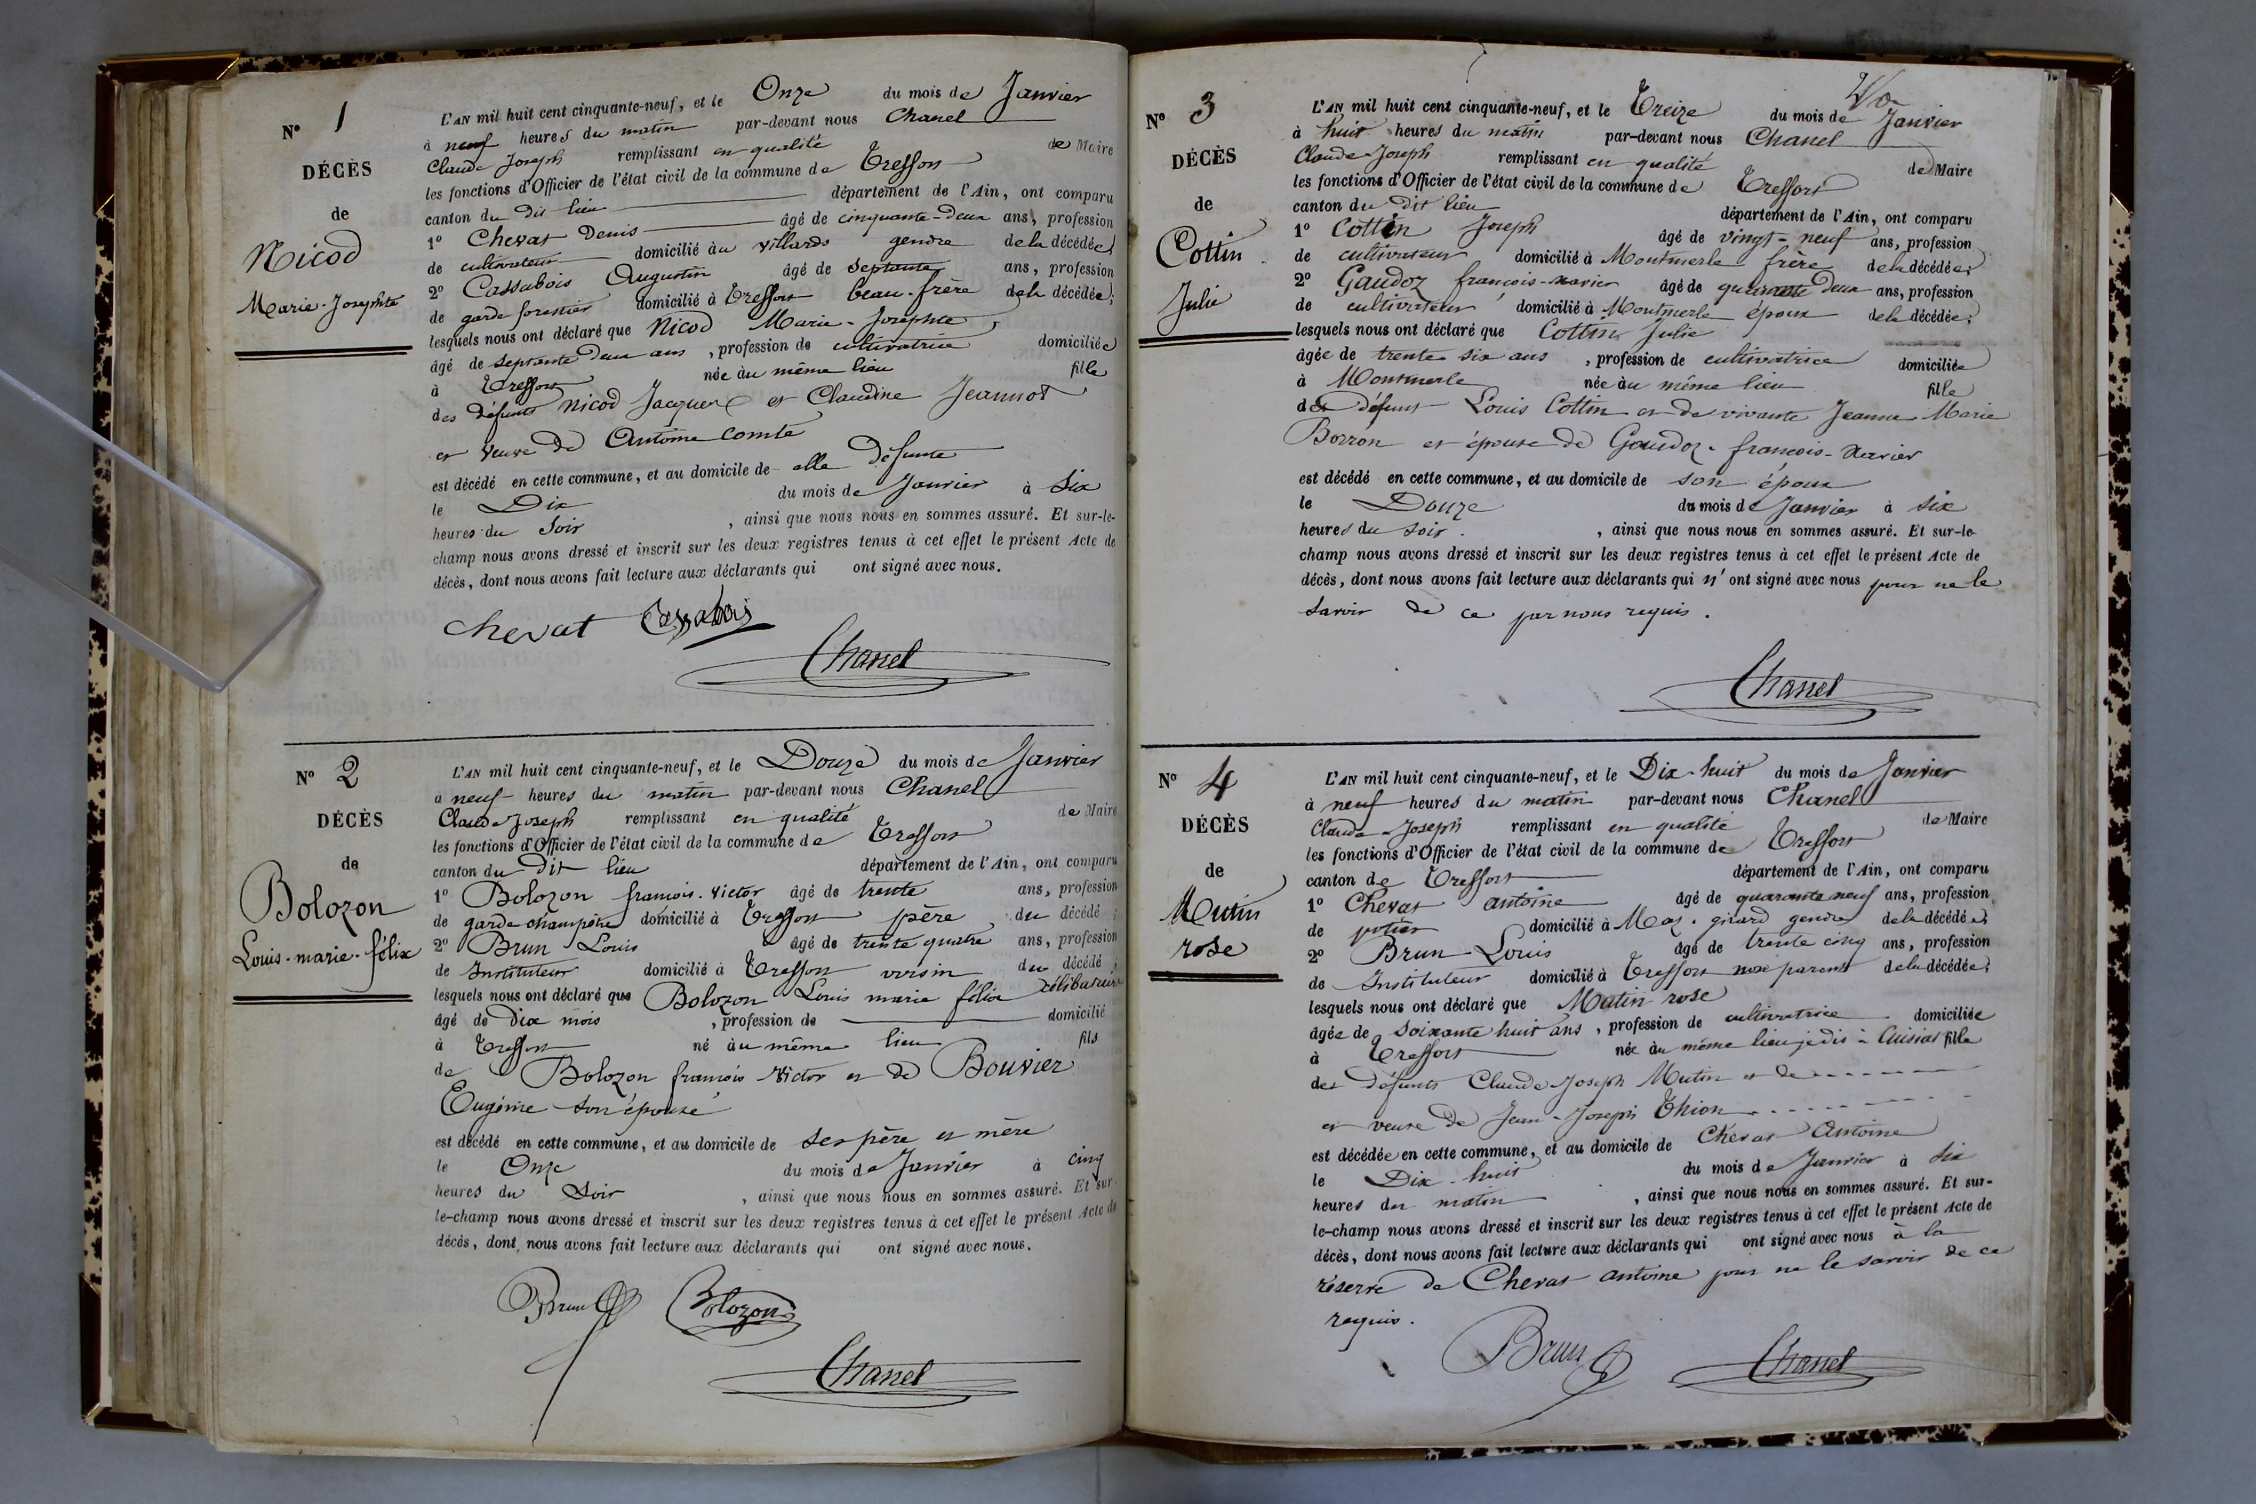 N° 1
DÉCÈS
de
Nicod
Marie-Josephte
L'AN mil huit cent cinquante-neuf, et le Onze du mois de Janvier
à neuf heures du matin par-devant nous Chanel
Claude Joseph remplissant en qualité de Maire
les fonctions d'Officier de l'état civil de la commune de Treffort
canton du dit lieu département de l'Ain, ont comparu
1° Chevat Denis âgé de cinquante-deux ans, profession
de cultivateur domicilié au villards gendre de la décédée;
2° Cassabois Augustin âgé de septante ans, profession
de garde forestier domicilié à Treffort beau-frère de la décédée;
lesquels nous ont déclaré que Nicod Marie-Josephte
âgé de septante deux ans, profession de cultivatrice domiciliée
à Treffort née au même lieu fille
des défunts Nicod Jacques et Claudine Jeannot
et veuve de Antoine Comte
est décédé en cette commune, et au domicile de elle défunte
le Dix du mois de Janvier à Six
heures du Soir, ainsi que nous nous en sommes assuré. Et sur-le-
champ nous avons dressé et inscrit sur les deux registres tenus à cet effet le présent Acte de
décès, dont nous avons fait lecture aux déclarants qui ont signé avec nous.
chevat Cassabois
Chanel
N° 2
DÉCÈS
de
Bolozon
Louis-marie-félix
L'AN mil huit cent cinquante-neuf, et le Douze du mois de Janvier
à neuf heures du matin par-devant nous Chanel
Claude Joseph remplissant en qualité de Maire
les fonctions d'Officier de l'état civil de la commune de Treffort
canton du dit lieu département de l'Ain, ont comparu
1° Bolozon francois-Victor âgé de trente ans, profession
de garde champêtre domicilié à Treffort père du décédé;
2° Brun Louis âgé de trente quatre ans, profession
de Instituteur domicilié à Treffort voisin du décédé;
lesquels nous ont déclaré que Bolozon Louis marie félix célibataire
âgé de dix mois, profession de domicilié
à Treffort né au même lieu fils
de Bolozon francois Victor et de Bouvier
Eugénie son épouse
est décédé en cette commune, et au domicile de ses père et mère
le Onze du mois de Janvier à cinq
heures du Soir, ainsi que nous nous en sommes assuré. Et sur-
le-champ nous avons dressé et inscrit sur les deux registres tenus à cet effet le présent Acte de
décès, dont nous avons fait lecture aux déclarants qui ont signé avec nous.
Brun Bolozon
Chanel
N° 3
DÉCÈS
de
Cottin
Julie
L'AN mil huit cent cinquante-neuf, et le Treize du mois de Janvier
à huit heures du matin par-devant nous Chanel
Claude-Joseph remplissant en qualité de Maire
les fonctions d'Officier de l'état civil de la commune de Treffort
canton du dit lieu département de l'Ain, ont comparu
1° Cottin Joseph âgé de vingt-neuf ans, profession
de cultivateur domicilié à Montmerle frère de la décédée;
2° Gaudoz francois-xavier âgé de quarante deux ans, profession
de cultivateur domicilié à Montmerle époux de la décédée;
lesquels nous ont déclaré que Cottin Julie
âgée de trente six ans, profession de cultivatrice domiciliée
à Montmerle née au même lieu fille
de défunt Louis Cottin et de vivante Jeanne Marie
Borron et épouse de Gaudoz-francois-Xavier
est décédé en cette commune, et au domicile de son époux
le Douze du mois de Janvier à six
heures du soir, ainsi que nous nous en sommes assuré. Et sur-le-
champ nous avons dressé et inscrit sur les deux registres tenus à cet effet le présent Acte de
décès, dont nous avons fait lecture aux déclarants qui n'ont signé avec nous pour ne le
savoir de ce par nous requis.
Chanel
N° 4
DÉCÈS
de
Mutin
rose
L'AN mil huit cent cinquante-neuf, et le Dix-huit du mois de Janvier
à neuf heures du matin par-devant nous Chanel
Claude-Joseph remplissant en qualité de Maire
les fonctions d'Officier de l'état civil de la commune de Treffort
canton de Treffort département de l'Ain, ont comparu
1° Chevat antoine âgé de quarante neuf ans, profession
de potier domicilié à Mas-girard gendre de la décédée;
2° Brun-Louis âgé de trente cinq ans, profession
de Instituteur domicilié à Treffort non parent de la décédée;
lesquels nous ont déclaré que Mutin rose
âgée de soixante huit ans, profession de cultivatrice domiciliée
à Treffort née au même lieu je dis à Cuisiat fille
des défunts Claude-Joseph Mutin et de
et veuve de Jean-Joseph Thion
est décédée en cette commune, et au domicile de Chevat Antoine
le Dix-huit du mois de Janvier à six
heures du matin, ainsi que nous nous en sommes assuré. Et sur-
le-champ nous avons dressé et inscrit sur les deux registres tenus à cet effet le présent Acte de
décès, dont nous avons fait lecture aux déclarants qui ont signé avec nous à la
réserve de Chevat antoine pour ne le savoir de ce
requis.
Brun Chanel